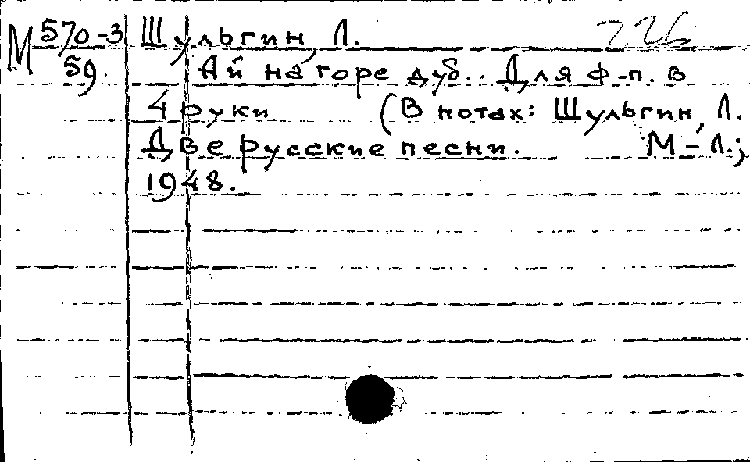 М 570-3 Шульгин, Л. 226
59. Ай на горе дуб.. Для ф-п. в
4 руки (В нотах: Шульгин, Л.
Две русские песни. М-Л.;
1948.